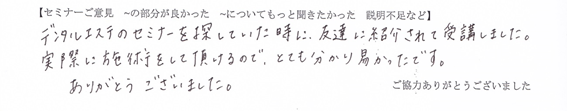 【セミナーご意見　~の部分が良かった　~についてもっと聞きたかった　説明不足など】
デンタルエステのセミナーを探していた時に、友達に紹介されて受講しました。
実際に施術をして頂けるので、とても分かり易かったです。
ありがとうございました。
ご協力ありがとうございました